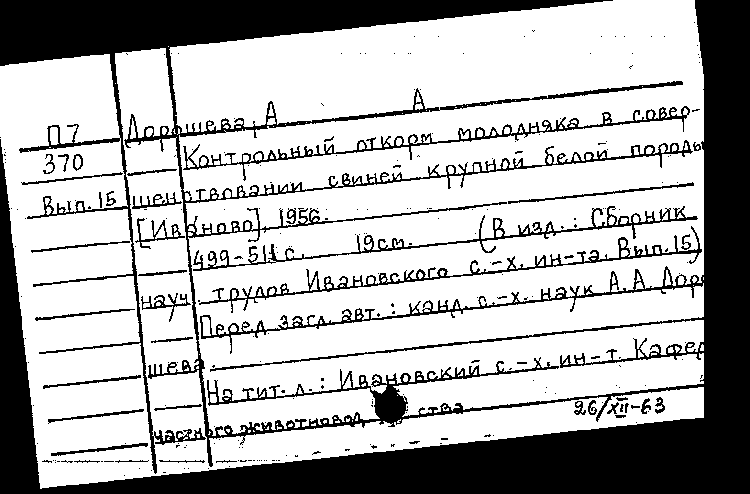 П7 Дорошева, А А
370 Контрольный откорм молодняка в совер-
Вып. 15 шенствовании свиней крупной белой породы
[Иваново], 1956.
499-511 с. 19 см. (В изд.: Сборник
науч. трудов Ивановского с.-х. ин-та. Вып. 15)
Перед загл. авт.: канд. с.-х. наук А.А. Доро
шева.
На тит. л.: Ивановский с.-х. ин-т. Кафед
частного животноводства
26/XII-63